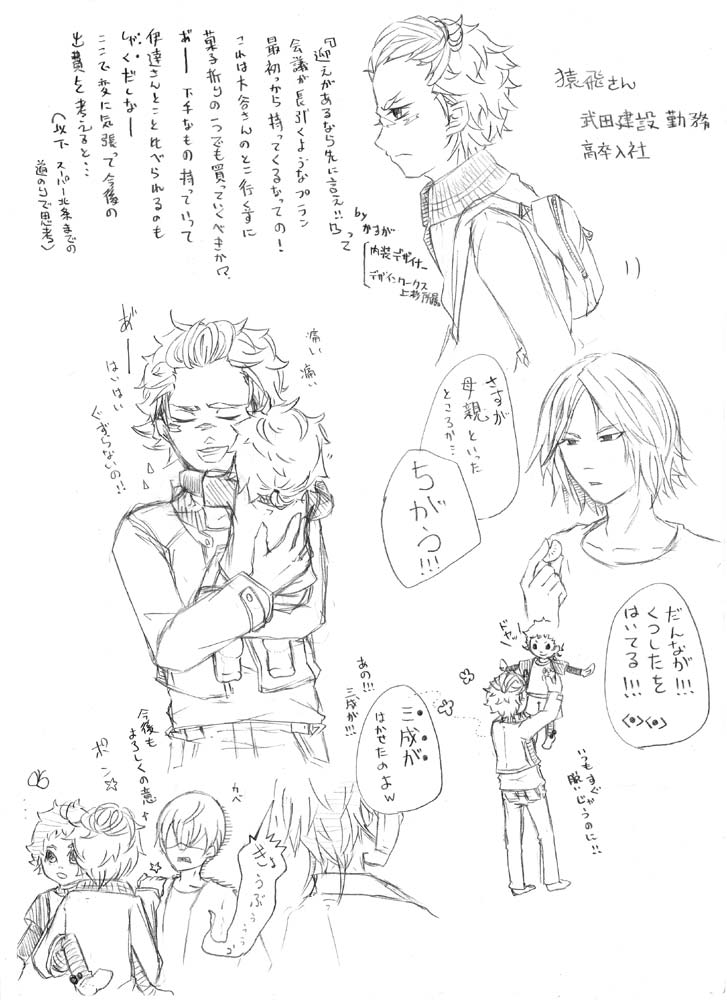 猿飛さん
武田建設勤務
高卒入社
『迎えがあるなら先に言え!!』って
会議が長引くようなプラン
最初っから持ってくるなっての!
これは大谷さんのとこ行く前に
菓子折りの一つでも買っていくべきか?
あ゛ー 下手なもの持っていって
伊達さんとこと比べられるのも
しゃくだしなー
ここで変に気張って今後の
出費を考えると…
(以下 スーパー北条までの
道のりで思考)
by かすが
内装デザイナー
デザインワークス
上杉所属
痛い
痛い
あ゛ー
はいはい
ぐずらないの!!
さすが
母親といった
ところか…
ちがう!!!
だんなが!!!
くつしたを
はいてる!!!
ドヤッ
いつもすぐ
脱いじゃうのに!!
あの!!!
三成が!!!
三成が
はかせたのよw
今後も
よろしくの意
ポン
かべ
きょうぶぅぅぅ